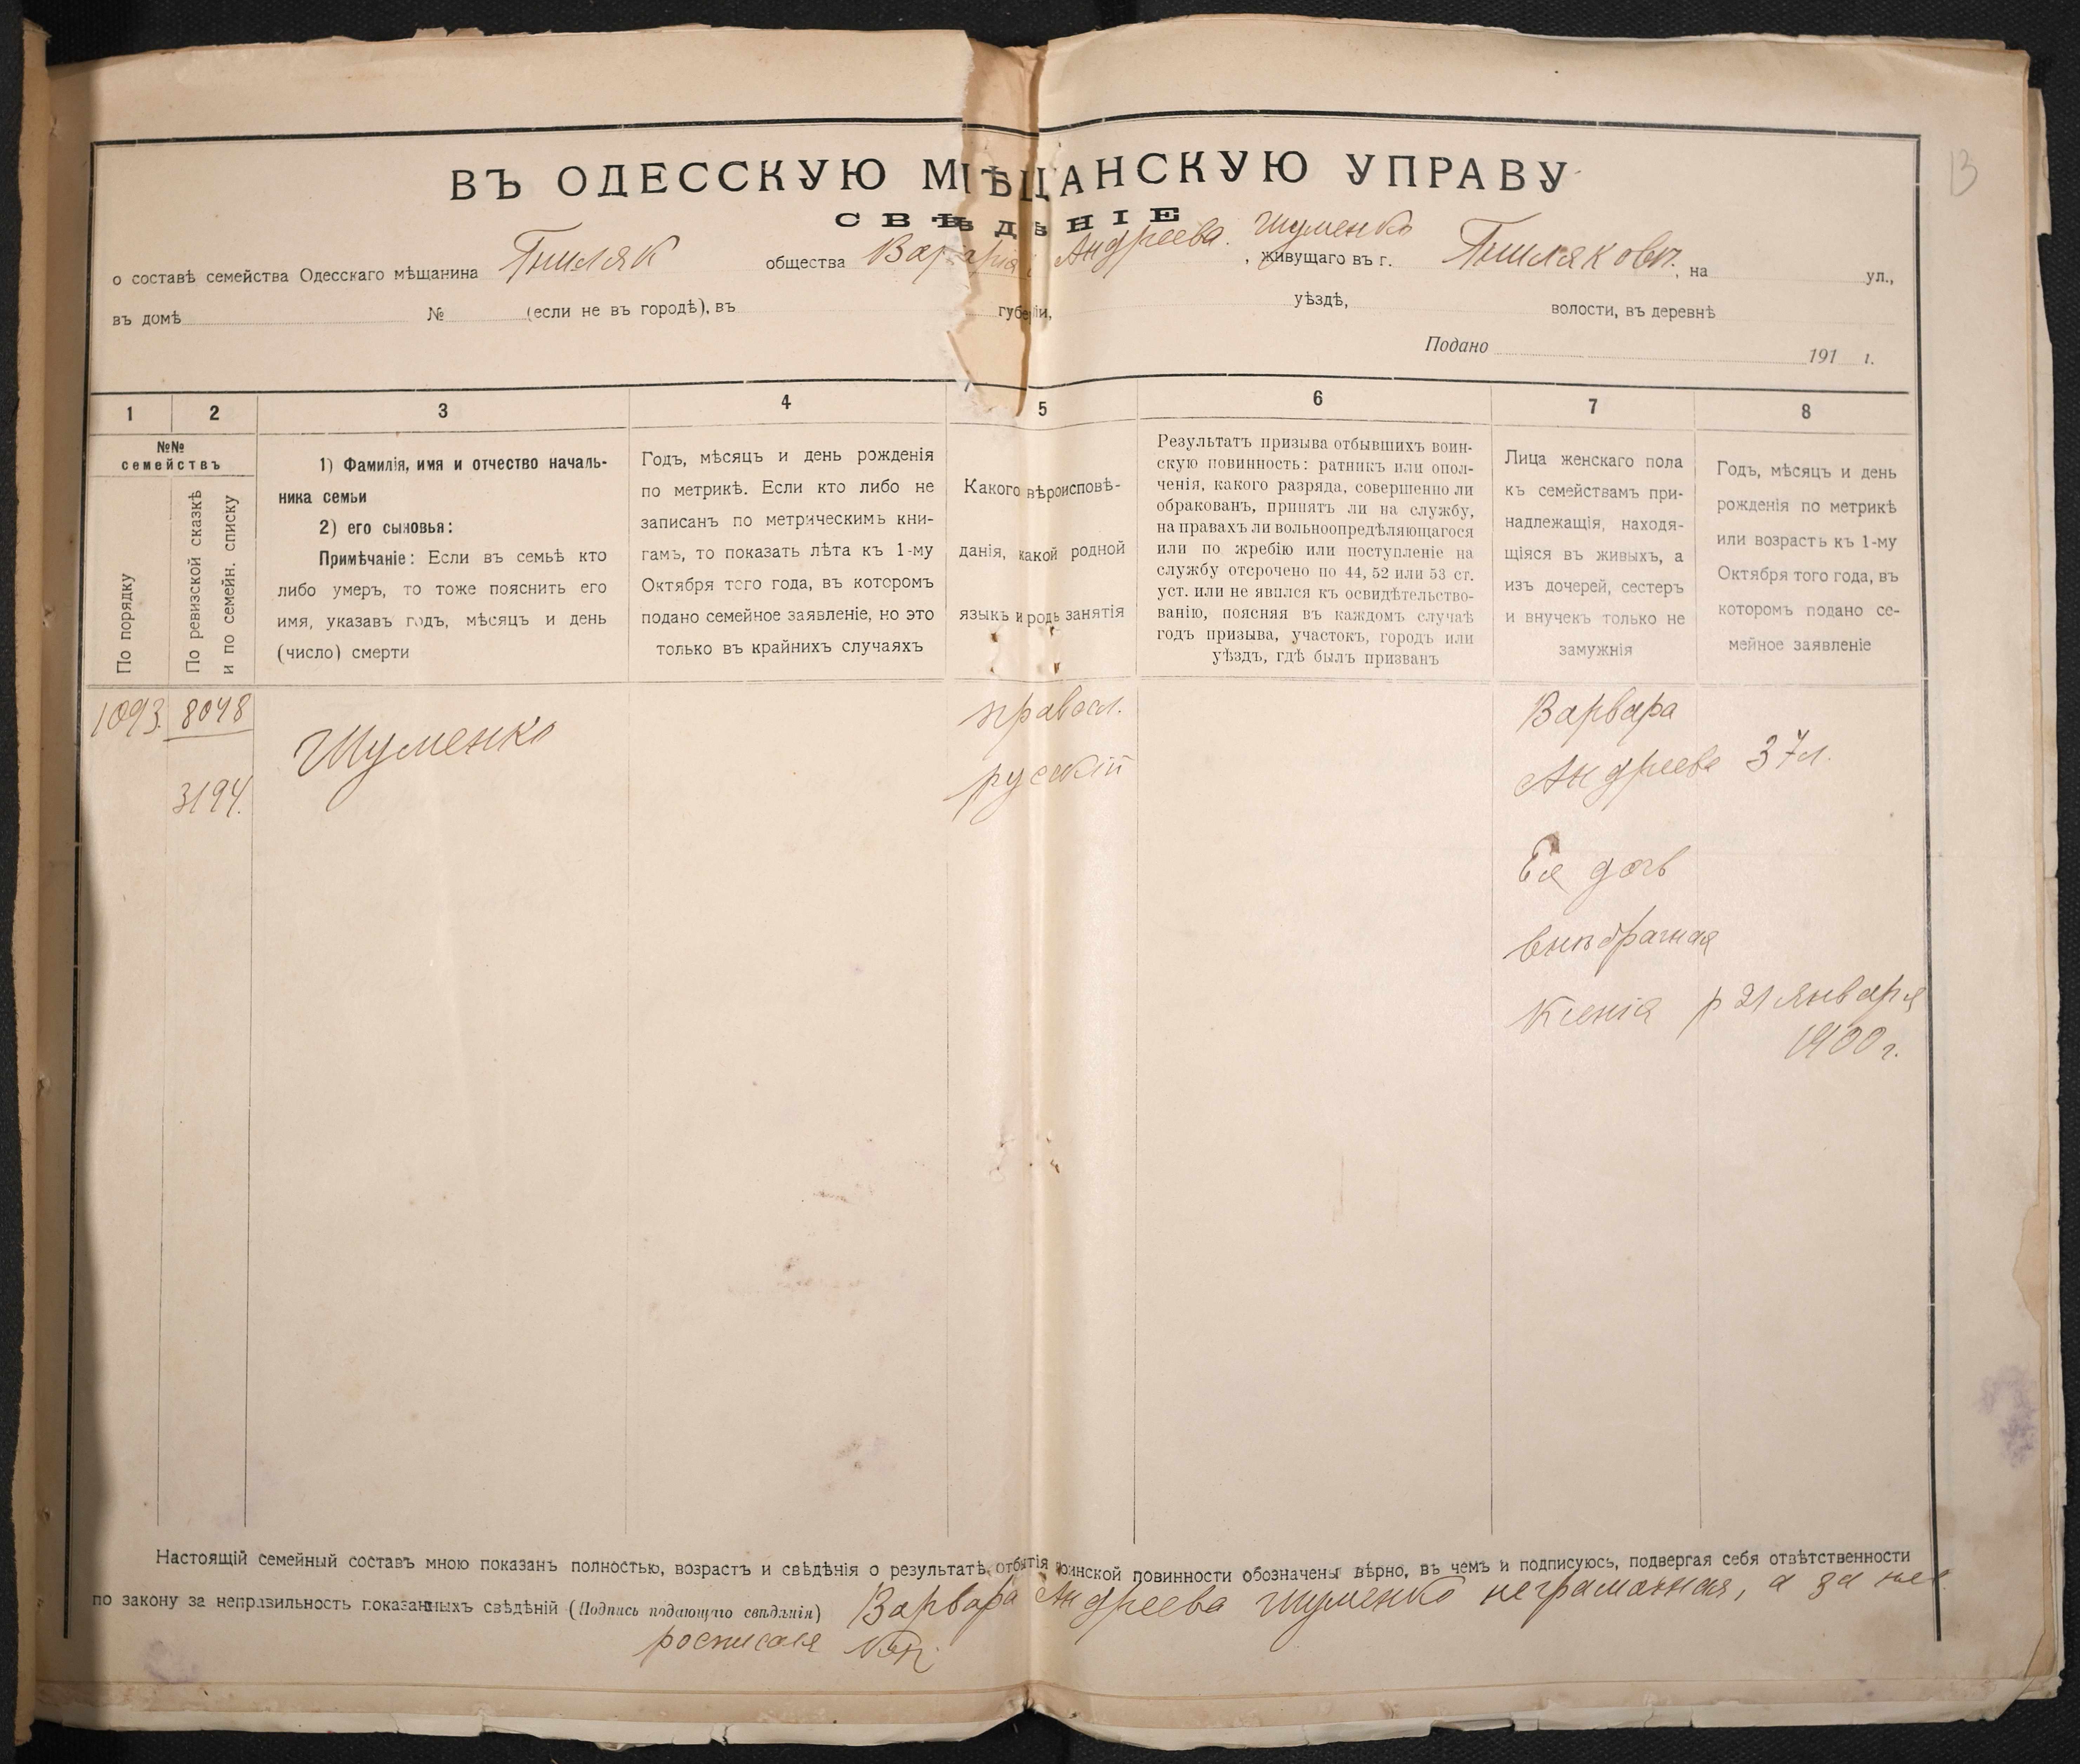 13
ВЪ ОДЕССКУЮ МѢЩАНСКУЮ УПРАВУ
СВѢДѢНІЕ
о составѣ семейства Одесскаго мѣщанина общества Варвара Андреева Шуменко, живущаго въ г. на ул.,
въ домѣ № (если не въ городѣ), въ губерніи, уѣздѣ, волости, въ деревнѣ
Подано 191 г.
1 2 3 4 5 6 7 8
№№
семействъ
По порядку
По ревизской сказкѣ
и по семейн. списку
1) Фамилія, имя и отчество началь-
ника семьи
2) его сыновья:
Примѣчаніе: Если въ семьѣ кто
либо умеръ, то тоже пояснить его
имя, указавъ годъ, мѣсяцъ и день
(число) смерти
Годъ, мѣсяцъ и день рожденія
по метрикѣ. Если кто либо не
записанъ по метрическимъ кни-
гамъ, то показать лѣта къ 1-му
Октября того года, въ которомъ
подано семейное заявленіе, но это
только въ крайнихъ случаяхъ
Какого вѣроисповѣ-
данія, какой родной
языкъ и родъ занятія
Результатъ призыва отбывшихъ воин-
скую повинность: ратникъ или опол-
ченія, какого разряда, совершенно ли
обракованъ, принятъ ли на службу,
на правахъ ли вольноопредѣляющагося
или по жребію или поступленіе на
службу отсрочено по 44, 52 или 53 ст.
уст. или не явился къ освидѣтельство-
ванію, поясняя въ каждомъ случаѣ
годъ призыва, участокъ, городъ или
уѣздъ, гдѣ былъ призванъ
Лица женскаго пола
къ семействамъ при-
надлежащія, находя-
щіяся въ живыхъ, а
изъ дочерей, сестеръ
и внучекъ только не
замужнія
Годъ, мѣсяцъ и день
рожденія по метрикѣ
или возрастъ къ 1-му
Октября того года, въ
которомъ подано се-
мейное заявленіе
1093. 8048
3194.
Шуменко
правосл.
русскій
Варвара
Андреева 37 л.
Ея дочь
внѣбрачная
Ксенія р 21 Января
1900 г.
Настоящій семейный составъ мною показанъ полностью, возрастъ и свѣдѣнія о результатѣ отбытія воинской повинности обозначены вѣрно, въ чемъ и подписуюсь, подвергая себя отвѣтственности
по закону за неправильность показанныхъ свѣдѣній (Подпись подающаго свѣдѣнія) Варвара Андреева Шуменко неграмотная, а за нее
росписался